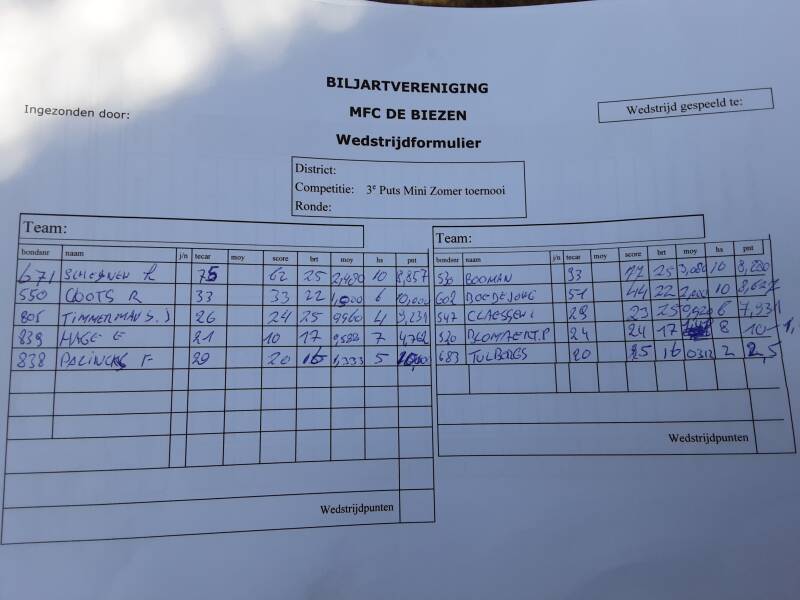 BILJARTVERENIGING
Ingezonden door:
MFC DE BIEZEN
Wedstrijd gespeeld te:
Wedstrijdformulier
District:
Competitie: 3e Puts Mini Zomer toernooi
Ronde:
Team:
bondsnr naam j/n tecar moy score brt moy hs pnt
671 75 62 25 2,480 10
550 COOTS R 33 33 22 6 10,000
805 TIMMERMANS J 26 24 25 4 9,231
839 HAGE E 21 10 17 7 4,762
838 29 20 16 5
Wedstrijdpunten
Team:
bondsnr naam j/n tecar moy score brt moy hs pnt
BOOMAN 93 77 25 3,080 10 8,280
602 51 44 22 2,000 10 8,627
547 CLAESSEN 29 23 25 6 7,931
520 24 24 17 8 10
683 20 16 2 2,5
Wedstrijdpunten